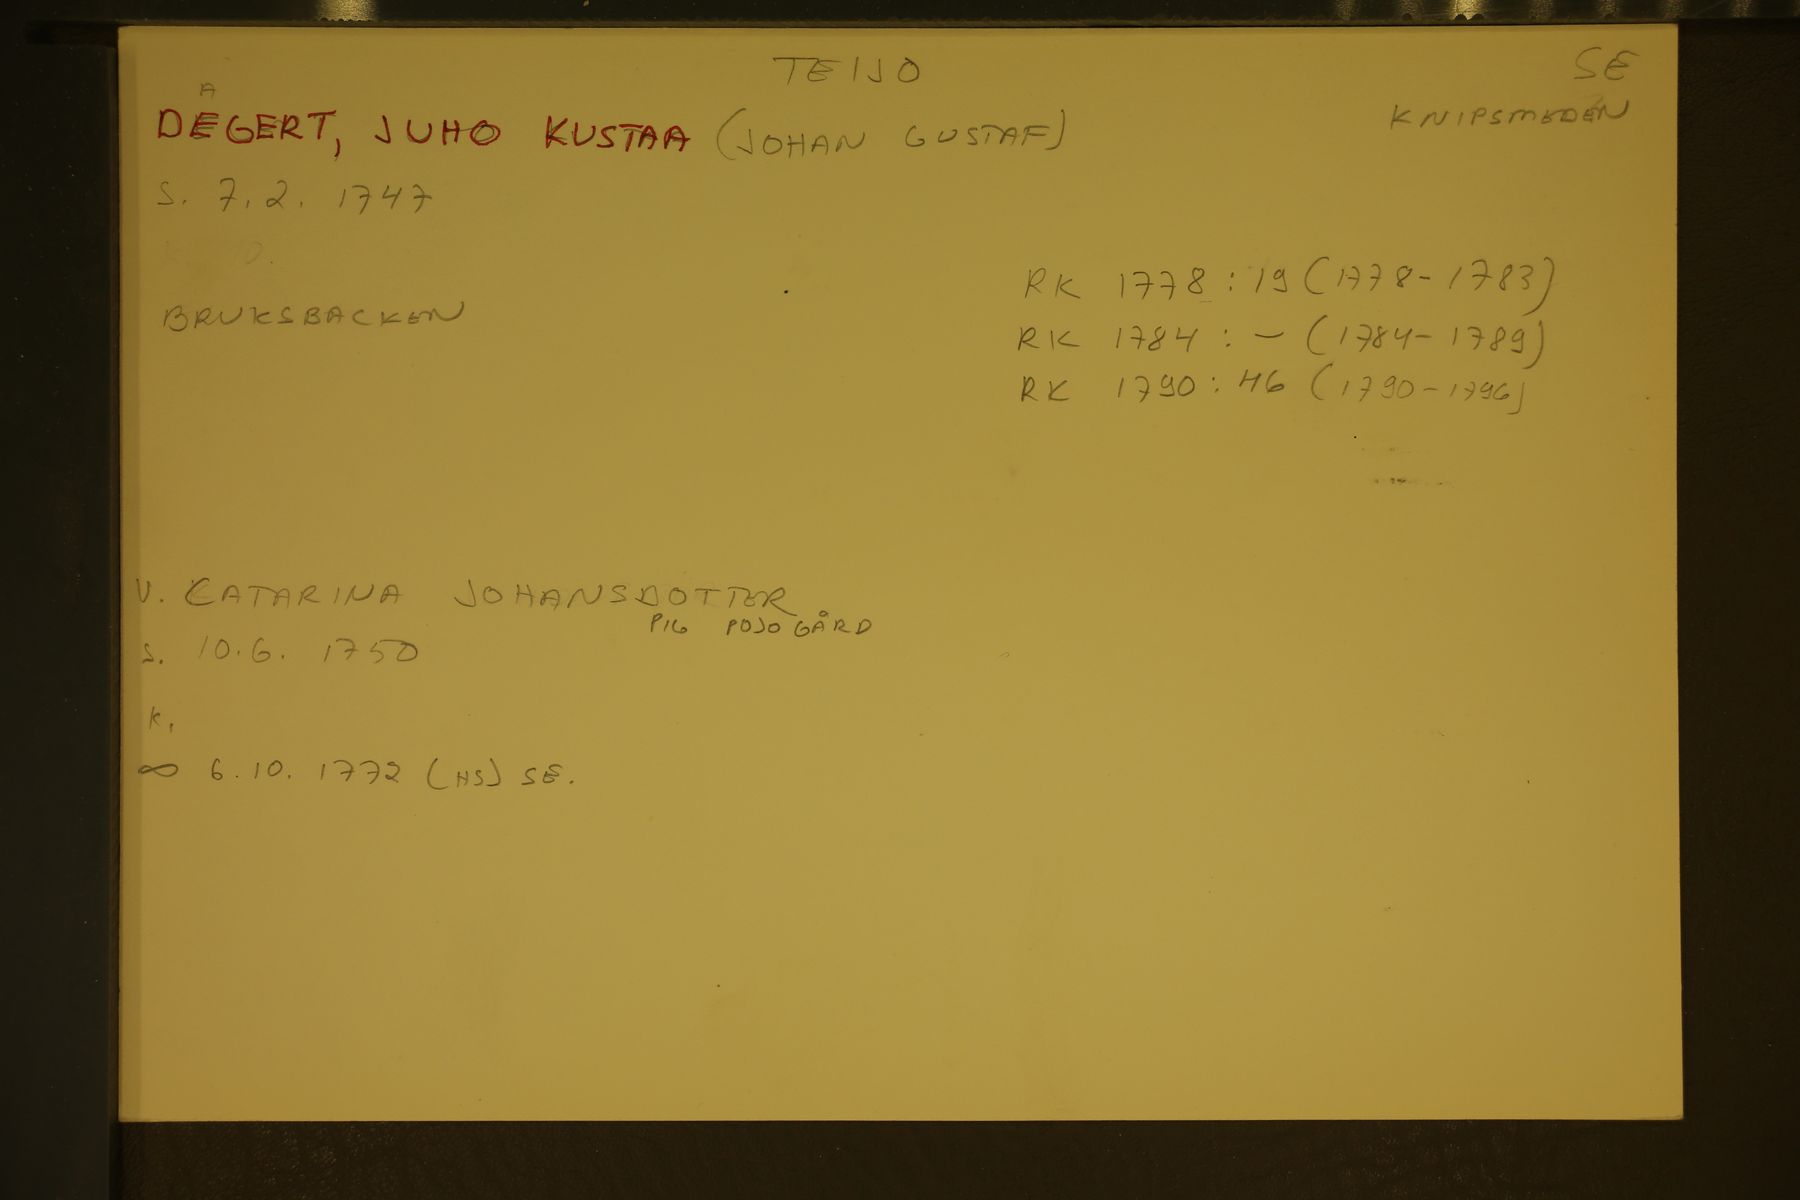 TEIJO
SE
A
DEGERT, JUHO KUSTAA (JOHAN GUSTAF)
KNIPSMEDEN
S. 7.2. 1747
BRUKSBACKEN
RK 1778 : 19 (1778-1783)
RK 1784 : - (1784-1789)
RK 1790 : 46 (1790-1796)
V. CATARINA JOHANSDOTTER
PIG POJO GÅRD
S. 10.6. 1750
K.
∞ 6.10. 1772 (HS) SE.